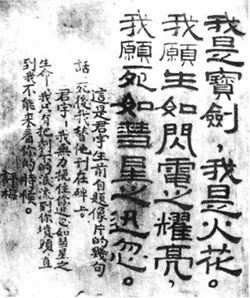 我是寶劍，我是火花。
我願生如閃電之耀亮，
我願死如彗星之迅忽。
這是君宇生前自題像片的幾句
話，死後我替他刊在碑上。
君宇！我無力挽住你迅忽如彗星之
生命，我只有把剩下的淚流到你墳頭，直
到我不能來看你的時候。 評梅